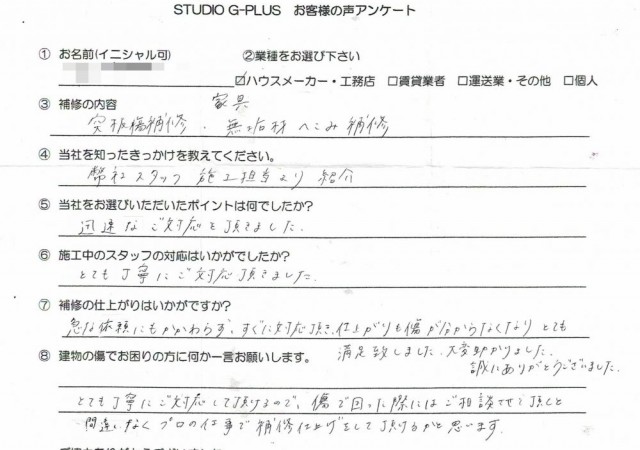 STUDIO G-PLUS お客様の声アンケート
① お名前(イニシャル可) ②業種をお選び下さい
☑ハウスメーカー・工務店 □賃貸業者 □運送業・その他 □個人
③ 補修の内容 家具
突板傷補修・無垢材へこみ補修
④ 当社を知ったきっかけを教えてください。
弊社スタッフ 施工担当より 紹介
⑤ 当社をお選びいただいたポイントは何でしたか?
迅速なご対応を頂きました。
⑥ 施工中のスタッフの対応はいかがでしたか?
とても丁寧にご対応頂きました。
⑦ 補修の仕上がりはいかがですか?
急な依頼にもかかわらず、すぐに対応頂き、仕上がりも傷が分からなくなり とても
満足致しました。大変助かりました。
⑧ 建物の傷でお困りの方に何か一言お願いします。
誠にありがとうございました。
とても丁寧にご対応して頂けるので、傷で困った際にはご相談させて頂くと
間違いなくプロの仕事で補修仕上げをして頂けるかと思います。